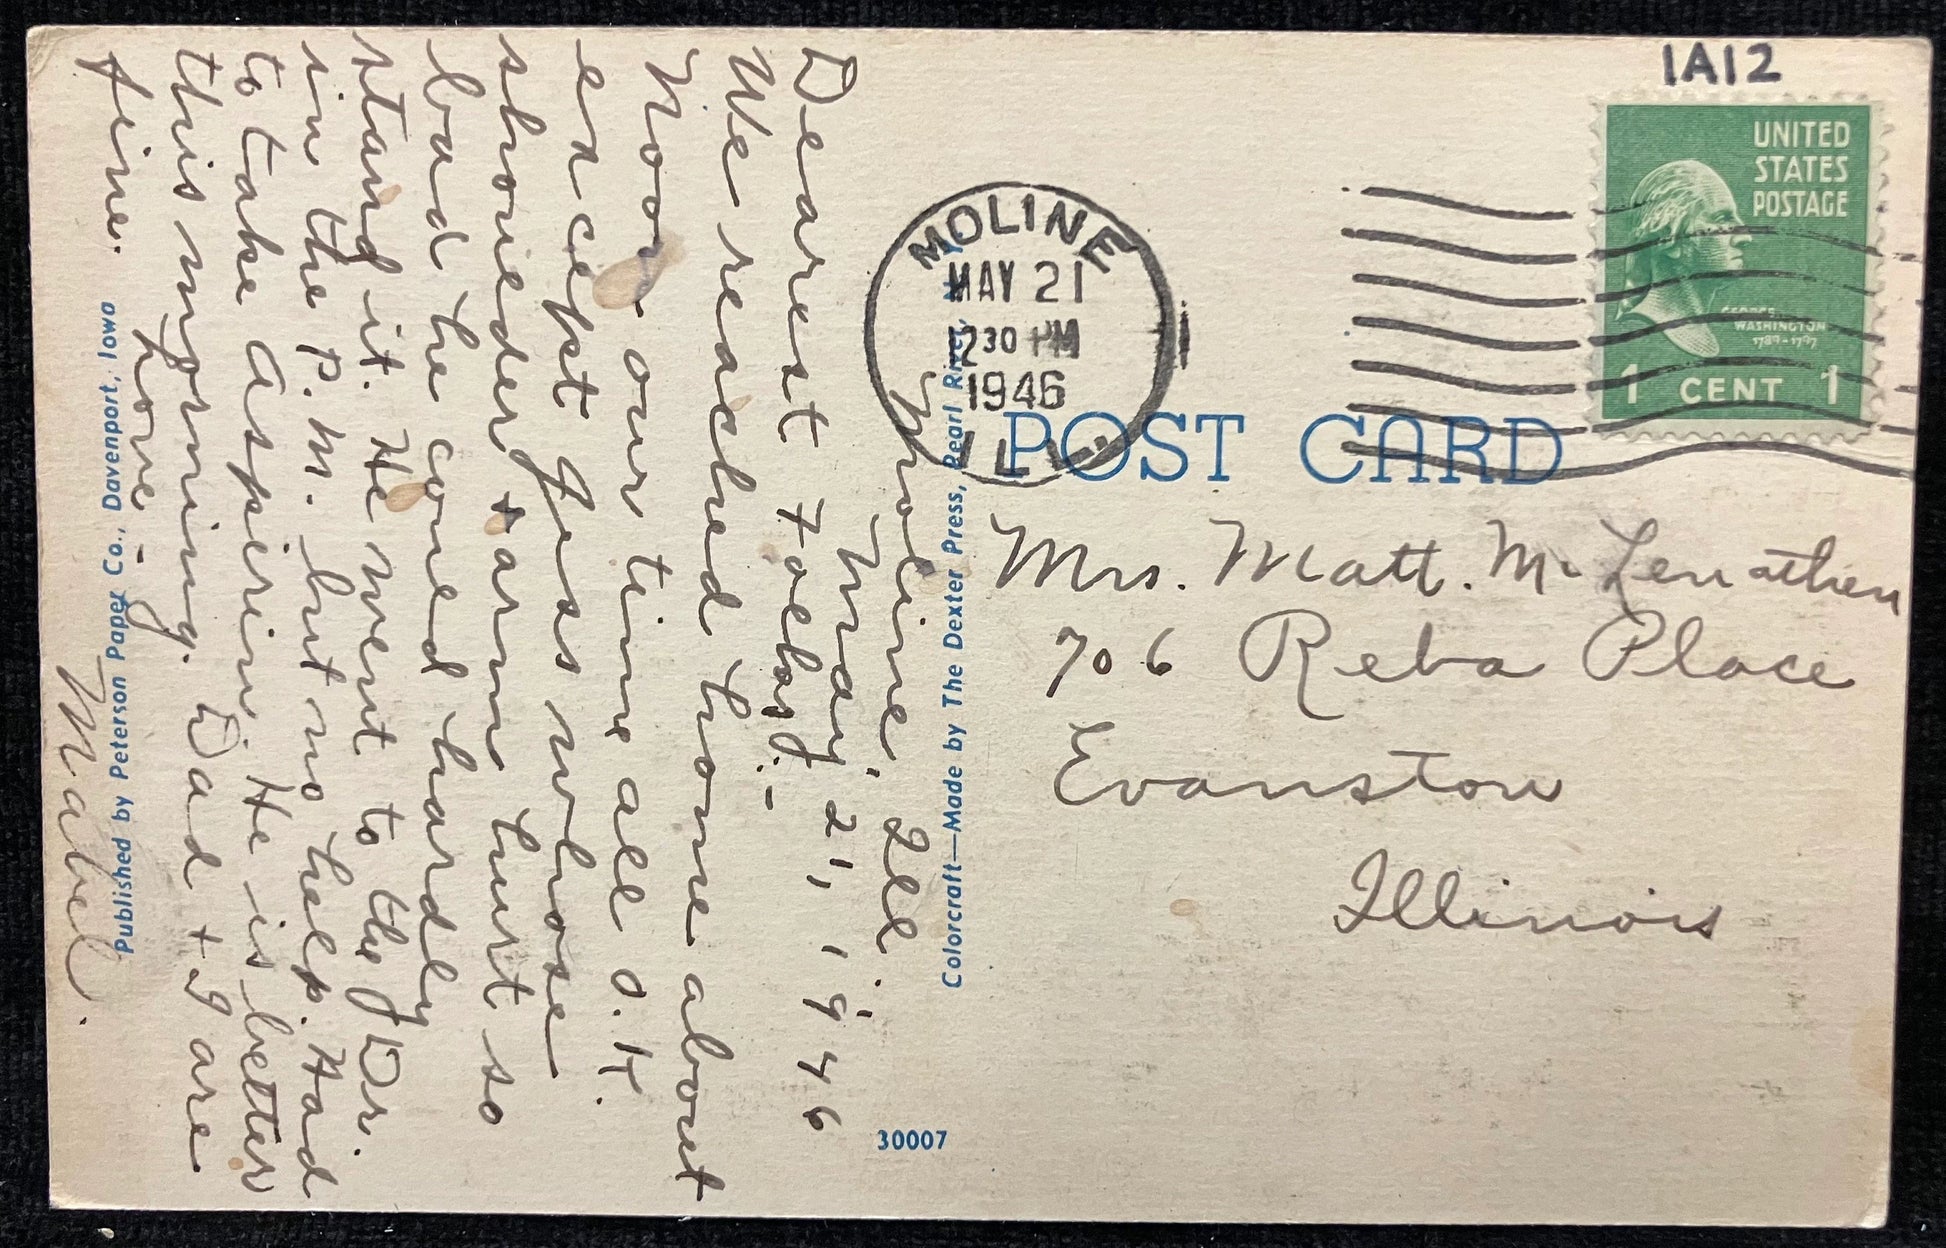 1A12
UNITED
STATES
POSTAGE
GEORGE
WASHINGTON
1789-1797
1 CENT 1
MOLINE
MAY 21
1230 PM
1946
ILL.
1
POST CARD
Mrs. Matt. McLenathen
706 Reba Place
Evanston
Illinois
Colorcraft—Made by The Dexter Press, Pearl River,
30007
Moline, Ill.
May 21, 1946
Dearest Folks:-
We reached home about
Noon - our time all O.K.
except Jess whose
shoulder + arm hurt so
bad he could hardly
stand it. He went to the Dr.
in the P.M. but no help. Had
to take Aspirin. He is better
this morning. Dad + I are
fine.
Love -
Mabel.
Published by Peterson Paper Co., Davenport, Iowa